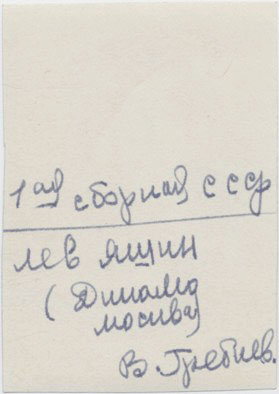 1ая сборная СССР
лев яшин
(Динамо
москва)
В. Гребнев.